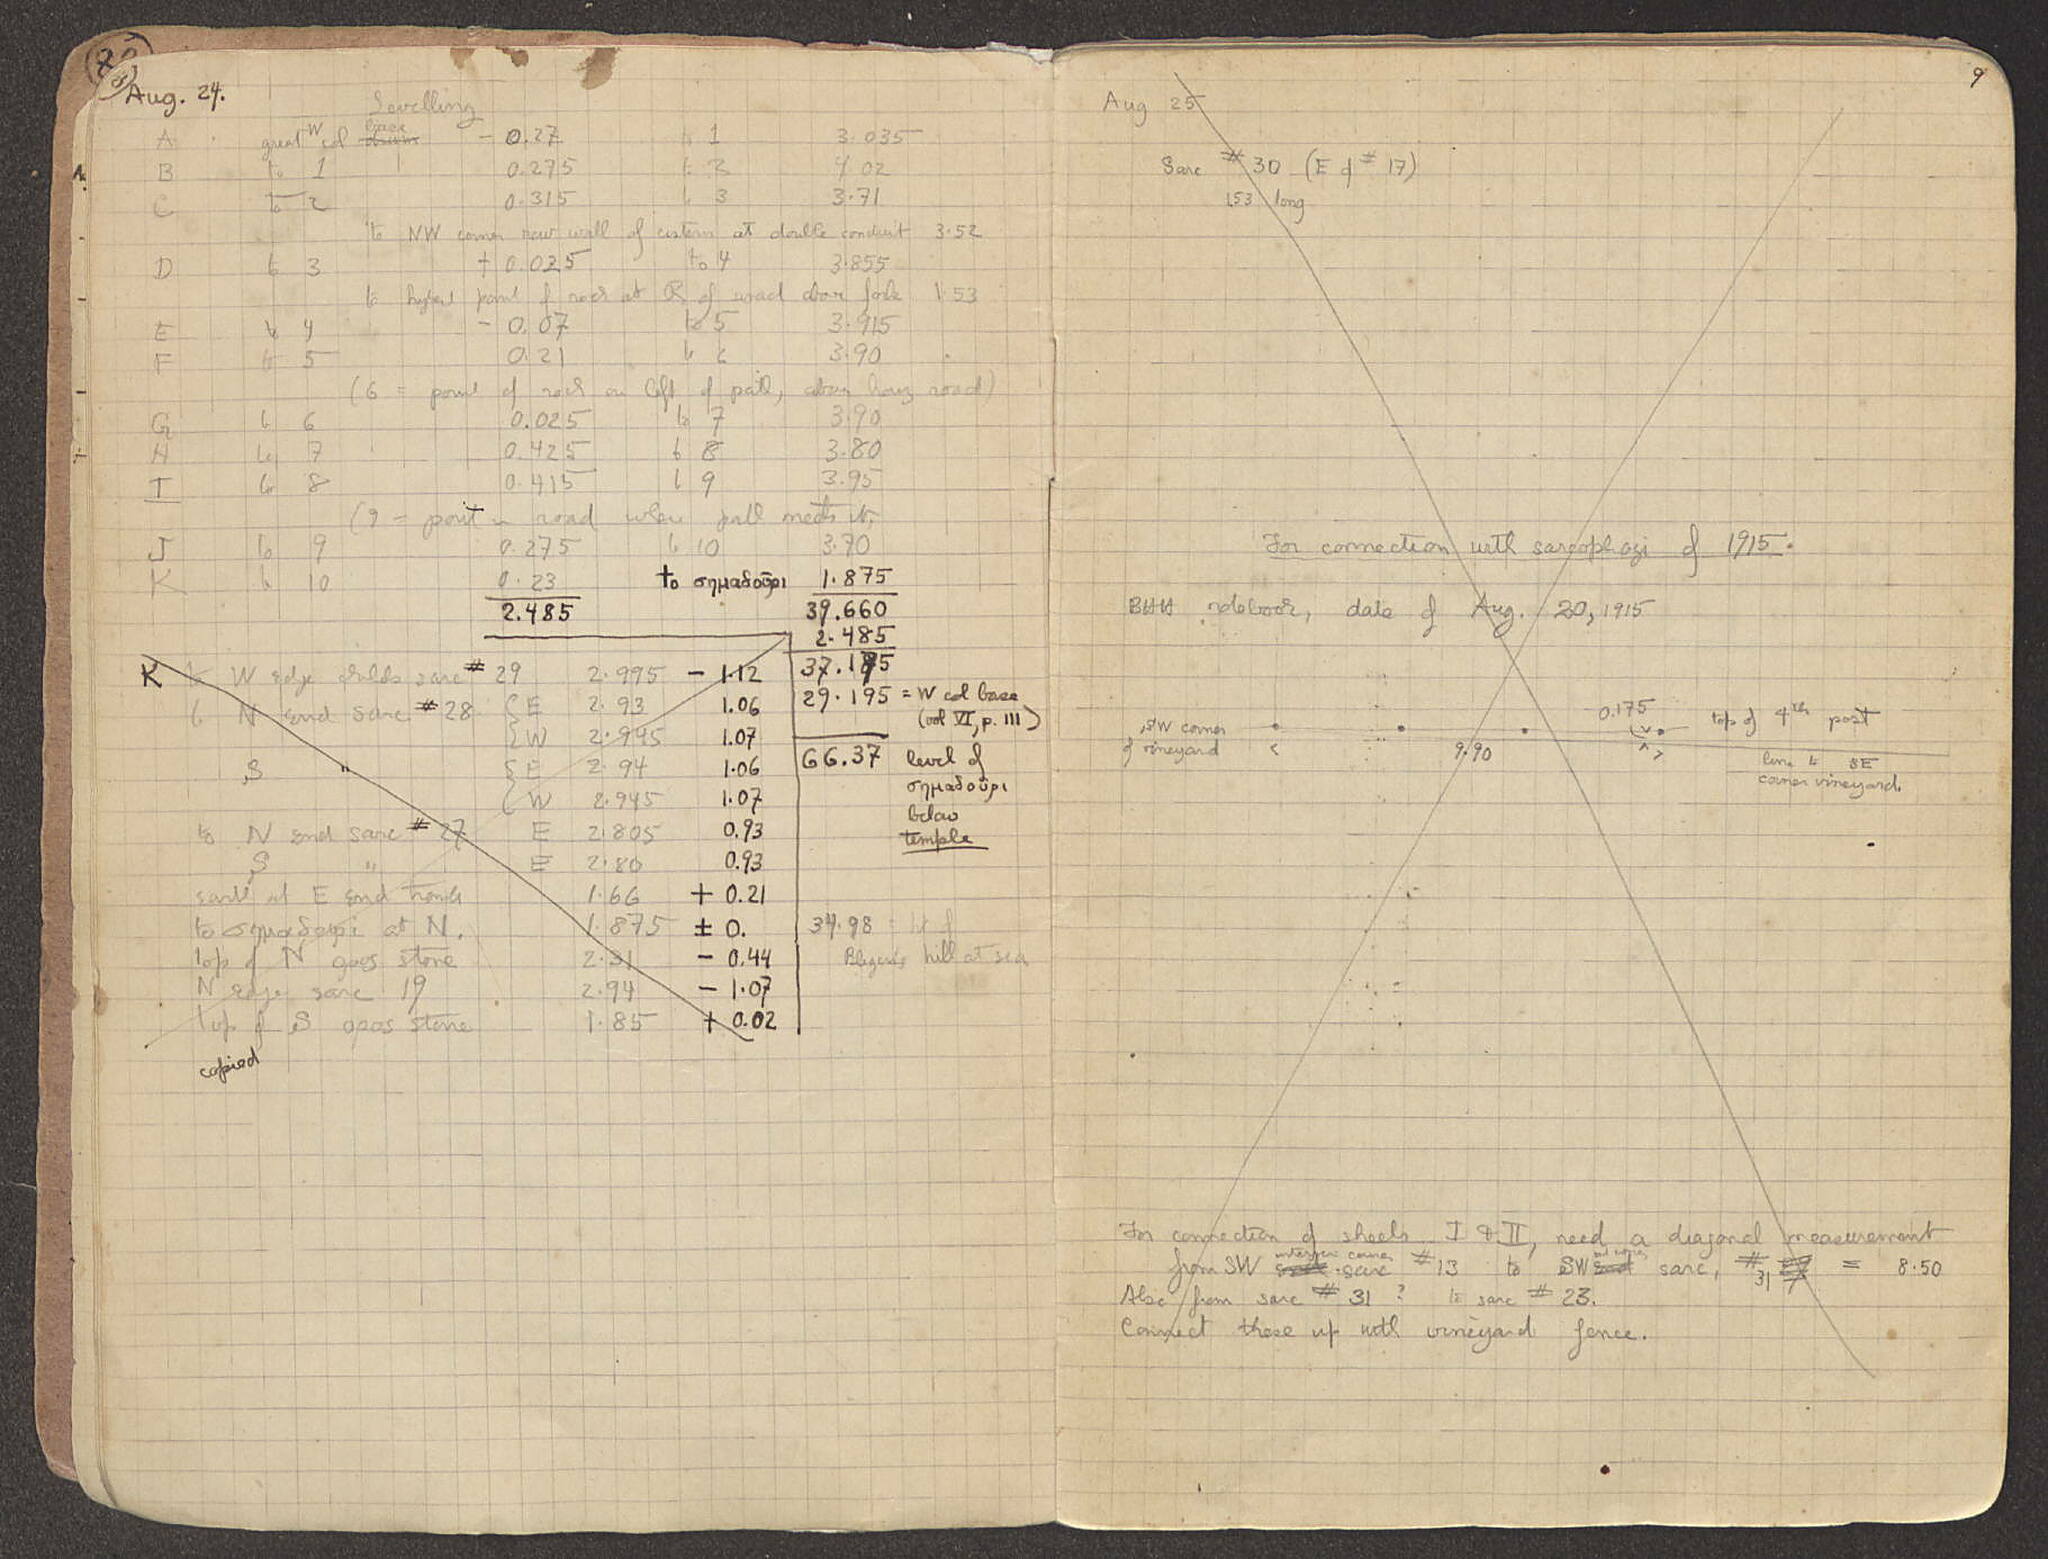 8
Aug. 24.
Levelling
A great W col base - 0.27 to 1 3.035
B to 1 0.275 to 2 4 02
C to 2 0.315 to 3 3.71
to NW corner rear wall of cistern at double conduit 3.52
D to 3 + 0.025 to 4 3.855
to highest point of rock at R. of road above fork 1.53
E to 4 - 0.07 to 5 3.915
F to 5 0.21 to 6 3.90
(6 = point of rock on left of path, above road)
G to 6 0.025 to 7 3.90
H to 7 0.425 to 8 3.80
I to 8 0.415 to 9 3.95
(9 = point in road where path meets it)
J to 9 0.275 to 10 3.70
K to 10 0.23 to σημαδοῦρι 1.875
2.485 39.660
2.485
37.175
K to W edge sarc # 29 2.995 - 1.12
29.195 = W col base
(vol VI, p. III)
to N end sarc # 28 { E 2.93 1.06
{ W 2.945 1.07
66.37 level of
σημαδοῦρι
below
temple
S " { E 2.94 1.06
{ W 2.945 1.07
to N end sarc # 27 E 2.805 0.93
S " E 2.80 0.93
earth at E end trench 1.66 + 0.21
to σημαδοῦρι at N. 1.875 ± 0.
34.98 = ht of
Blegen's hill at sea
top of N opos stone 2.31 - 0.44
N edge sarc 19 2.94 - 1.07
top of S opos stone 1.85 + 0.02
copied
9
Aug 25
Sarc # 30 (E of # 17)
1.53 long
For connection with sarcophagi of 1915.
BHH notebook, date of Aug. 20, 1915
SW corner
of vineyard
9.90
0.175
top of 4th post
line to SE
corner vineyard.
For connection of sheets I & II, need a diagonal measurement
from SW interior corner sarc # 13 to SW sarc, # 31 = 8.50
Also from sarc # 31 ? to sarc # 23.
Connect these up with vineyard fence.